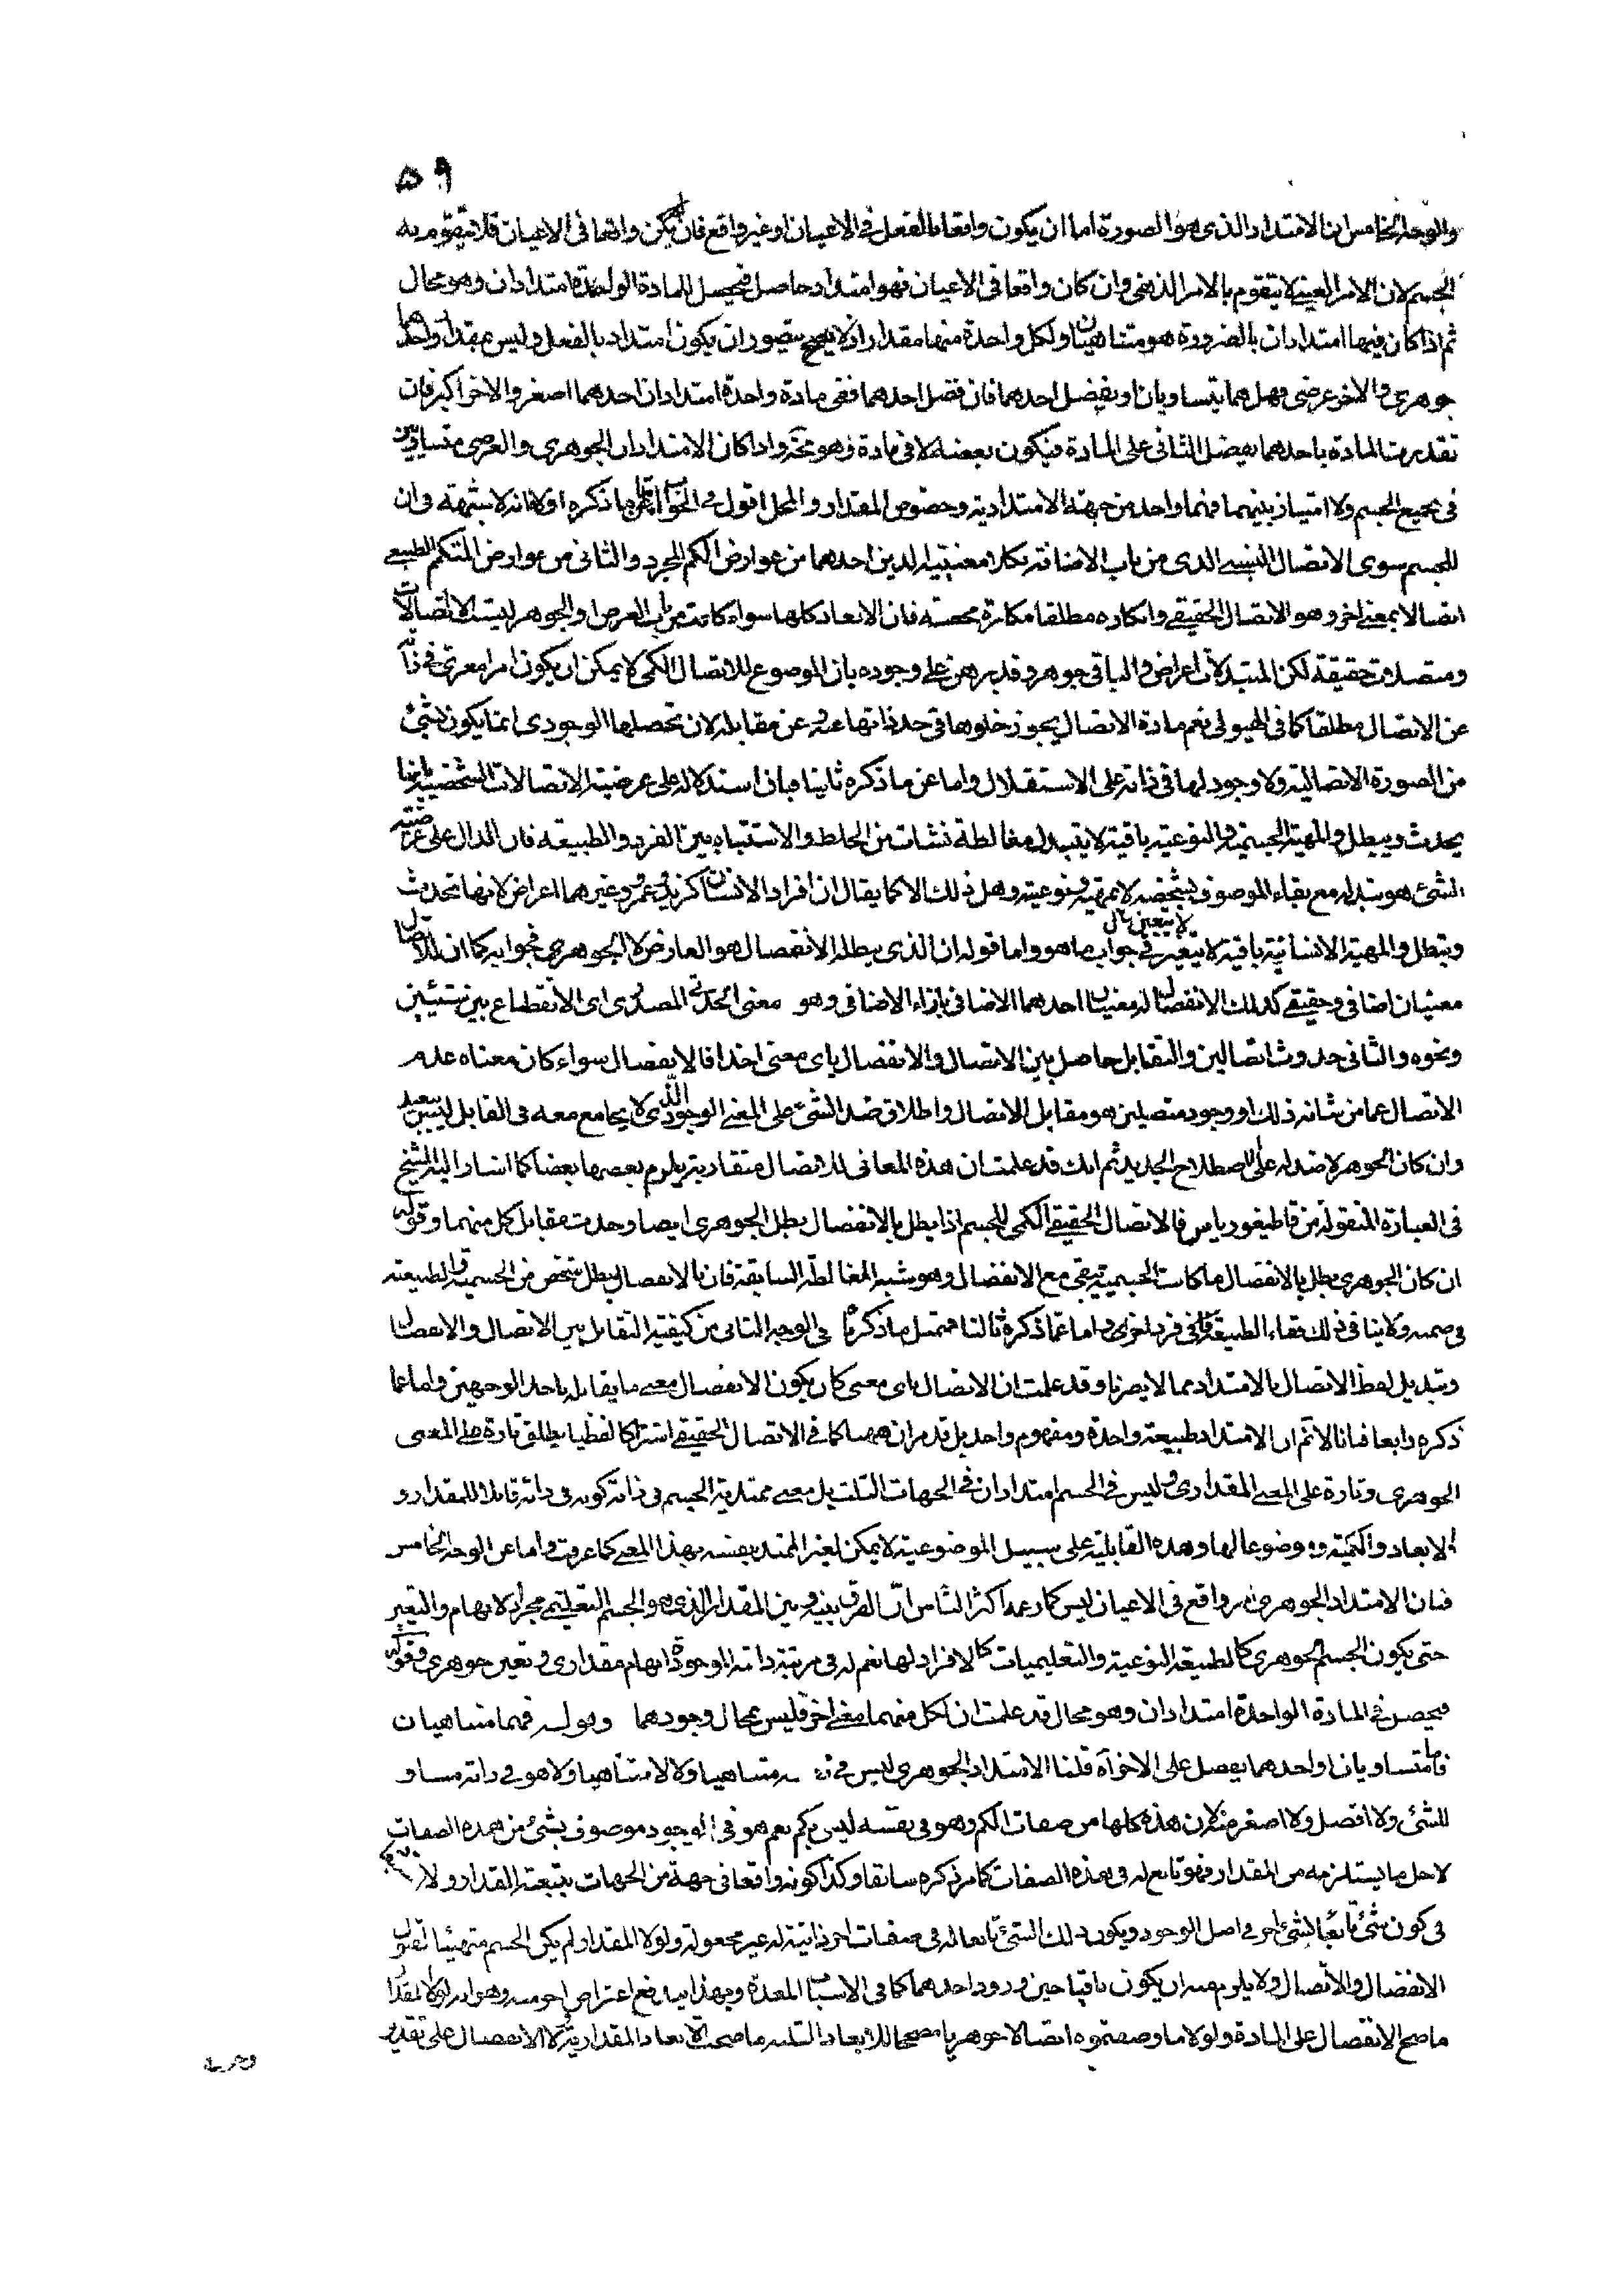 ٥٩
والوجه الخامس ان الامتداد الذى هو الصورة اما ان يكون واقعا بالفعل فى الاعيان او غير واقع فان لم يكن واقعا فى الاعيان فلا يتقوم به
الجسم لان الامر العينى لا يتقوم بالامر الذهنى وان كان واقعا فى الاعيان فهو امتداد حاصل فيحصل للمادة الواحدة امتدادان وهو محال
ثم اذا كان فيها امتدادان بالضرورة هو متناهيان ولكل واحدة منها مقدار اذ لا يصح يتصور ان يكون امتداد بالفعل وليس بمقدار واحدهما
جوهرى والاخر عرضى فهل هما يتساويان او يفضل احدهما فان فضل احدهما ففى مادة واحدة امتدادان احدهما اصغر والاخر اكبر فان
تقدرت المادة باحدهما يفضل الثانى على المادة فيكون بعضه لا فى مادة وهو مح واذا كان الامتدادان الجوهرى والعرضى متساويين
فى جميع الجسم ولا امتياز بينهما فهما واحد من جهة الامتدادية وخصوص المقدار والمحل اقول فى الجواب اما عن ما ذكره اولا فانه لا شبهة فى ان
للجسم سوى الاتصال النسبى الذى من باب الاضافة بكلا معنييه الذين احدهما من عوارض الكم المجرد والثانى من عوارض المتكمم الطبيعى
اتصالا بمعنى اخر وهو الاتصال الحقيقى وانكاره مطلقا مكابرة محضة فان الابعاد كلها سواء كانت من باب العرض او الجوهر ليست الا اتصالات
ومتصلات حقيقة لكن المتبدلات اعراض والباقى جوهر وقد برهن على وجوده بان الموضوع للاتصال الكمى لا يمكن ان يكون امرا معرى فى ذاته
عن الاتصال مطلقا كما فى الهيولى نعم مادة الاتصال يجوز خلوها فى حد ذاتها عنه وعن مقابله لان تحصلها الوجودى انما يكون بشئ
من الصورة الاتصالية ولا وجود لها فى ذاته على الاستقلال واما عن ما ذكره ثانيا فبان استدلاله على عرضية الاتصالات الشخصية بانها
يحدث ويبطل والمهية الجسمية والنوعية باقية لا يتبدل مغالطة نشات من الخلط والاشتباه بين الفرد والطبيعة فان الدال على عرضية
الشئ هو تبدله مع بقاء الموصوف بشخصه لا بمهيته ونوعيته وهل ذلك الا كما يقال ان افراد الانسان كزيد وعمرو وغيرهما اعراض لانها تحدث
وتبطل والمهية الانسانية باقية لا يتغير فى جواب ما هو واما قوله ان الذى يبطله الانفصال هو العارض لا الجوهرى فجوابه كما ان للاتصال
معنيان اضافى وحقيقى كذلك الانفصال له معنيان احدهما الاضافى بازاء الاضافى وهو معنى الحدثى المصدرى اى الانقطاع بين شيئين
ونحوه والثانى حدوث اتصالين والتقابل حاصل بين الاتصال والانفصال باى معنى اخذا فالانفصال سواء كان معناه عدم
الاتصال عما من شانه ذلك او وجود متصلين هو مقابل للاتصال واطلاق ضد الشئ على المعنى الوجودى الذى لا يجامع معه فى القابل ليس ببعيد
وان كان الجوهر لا ضد له على الاصطلاح الجديد ثم انك قد علمت ان هذه المعانى للاتصال متقاربة يلزم بعضها بعضا كما اشار اليه الشيخ
فى العبارة المنقولة من قاطيغورياس فالاتصال الحقيقى الكمى للجسم اذا بطل بالانفصال بطل الجوهرى ايضا وحدث مقابل كل منهما وقوله
ان كان الجوهرى بطل بالانفصال ما كانت الجسمية تبقى مع الانفصال وهو شبه المغالطة السابقة فان بالانفصال يبطل شخص من الجسمية والطبيعة
فى ضمنه ولا ينافى ذلك بقاء الطبيعة فى فرد اخر واما عما ذكره ثالثا فبمثل ما ذكرنا فى الوجه الثانى من كيفية التقابل بين الاتصال والانفصال
وتبديل لفظ الاتصال بالامتداد مما لا يضرنا وقد علمت ان الاتصال باى معنى كان يكون الانفصال معنى ما يقابله باحد الوجهين واما عما
ذكره رابعا فبانا لا نم ان الامتداد طبيعة واحدة ومفهوم واحد بل قد مر ان ههنا كما فى الاتصال الحقيقى اشتراكا لفظيا يطلق تارة على المعنى
الجوهرى وتارة على المعنى المقدارى وليس فى الجسم امتدادان فى الجهات الثلث بل معنى ممتدية الجسم فى ذاته كونه فى ذاته قابلا للمقدار و
الابعاد والكمية وموضوعا لها وهذه القابلية على سبيل الموضوعية لا يمكن لغير الممتد بنفسه بهذا المعنى كما عرفت واما عن الوجه الخامس
فبان الامتداد الجوهرى امر واقع فى الاعيان ليس كما زعمه اكثر الناس ان الفرق بينه وبين المقدار الذى هو الجسم التعليمى مجرد الابهام والتعين
حتى يكون الجسم الجوهرى كالطبيعة النوعية والتعليميات كالافراد لها نعم له فى مرتبة ذاته الموجودة ابهام مقدارى وتعين جوهرى وقوله
فيحصل فى المادة الواحدة امتدادان وهو محال قد علمت ان لكل منهما معنى اخر فليس بمحال وجودهما وقوله فهما متناهيان
فاما متساويان او احدهما يفضل على الاخر آه قلنا الامتداد الجوهرى ليس فى متناهيا ولا لا متناهيا ولا هو فى ذاته مساو
للشئ ولا افضل ولا اصغر منه لان هذه كلها من صفات الكم وهو فى نفسه ليس بكم نعم هو فى الوجود موصوف بشئ من هذه الصفات
لاجل ما يستلزمه من المقدار فهو تابع له فى هذه الصفات كما مر ذكره سابقا وكذا كونه واقعا فى جهة من الجهات بتبعية المقدار ولا
فى كون شئ تابعا لشئ اخر فى اصل الوجود ويكون ذلك الشئ تابعا له فى صفات اخر ذاتية له غير مجعولة ولولا المقدار لم يكن الجسم متهيئا لقبول
الانفصال والاتصال ولا يلزم منه ان يكون باقيا حين ورود احدهما كما فى الاسباب المعدة وبهذا يندفع اعتراض اخر منه وهو انه لولا المقدار
ما صح الانفصال على المادة ولولا ما وصفتموه اتصالا جوهريا مصححا للابعاد الثلثه ما صحت الابعاد المقدارية ولا الانفصال على تقدير